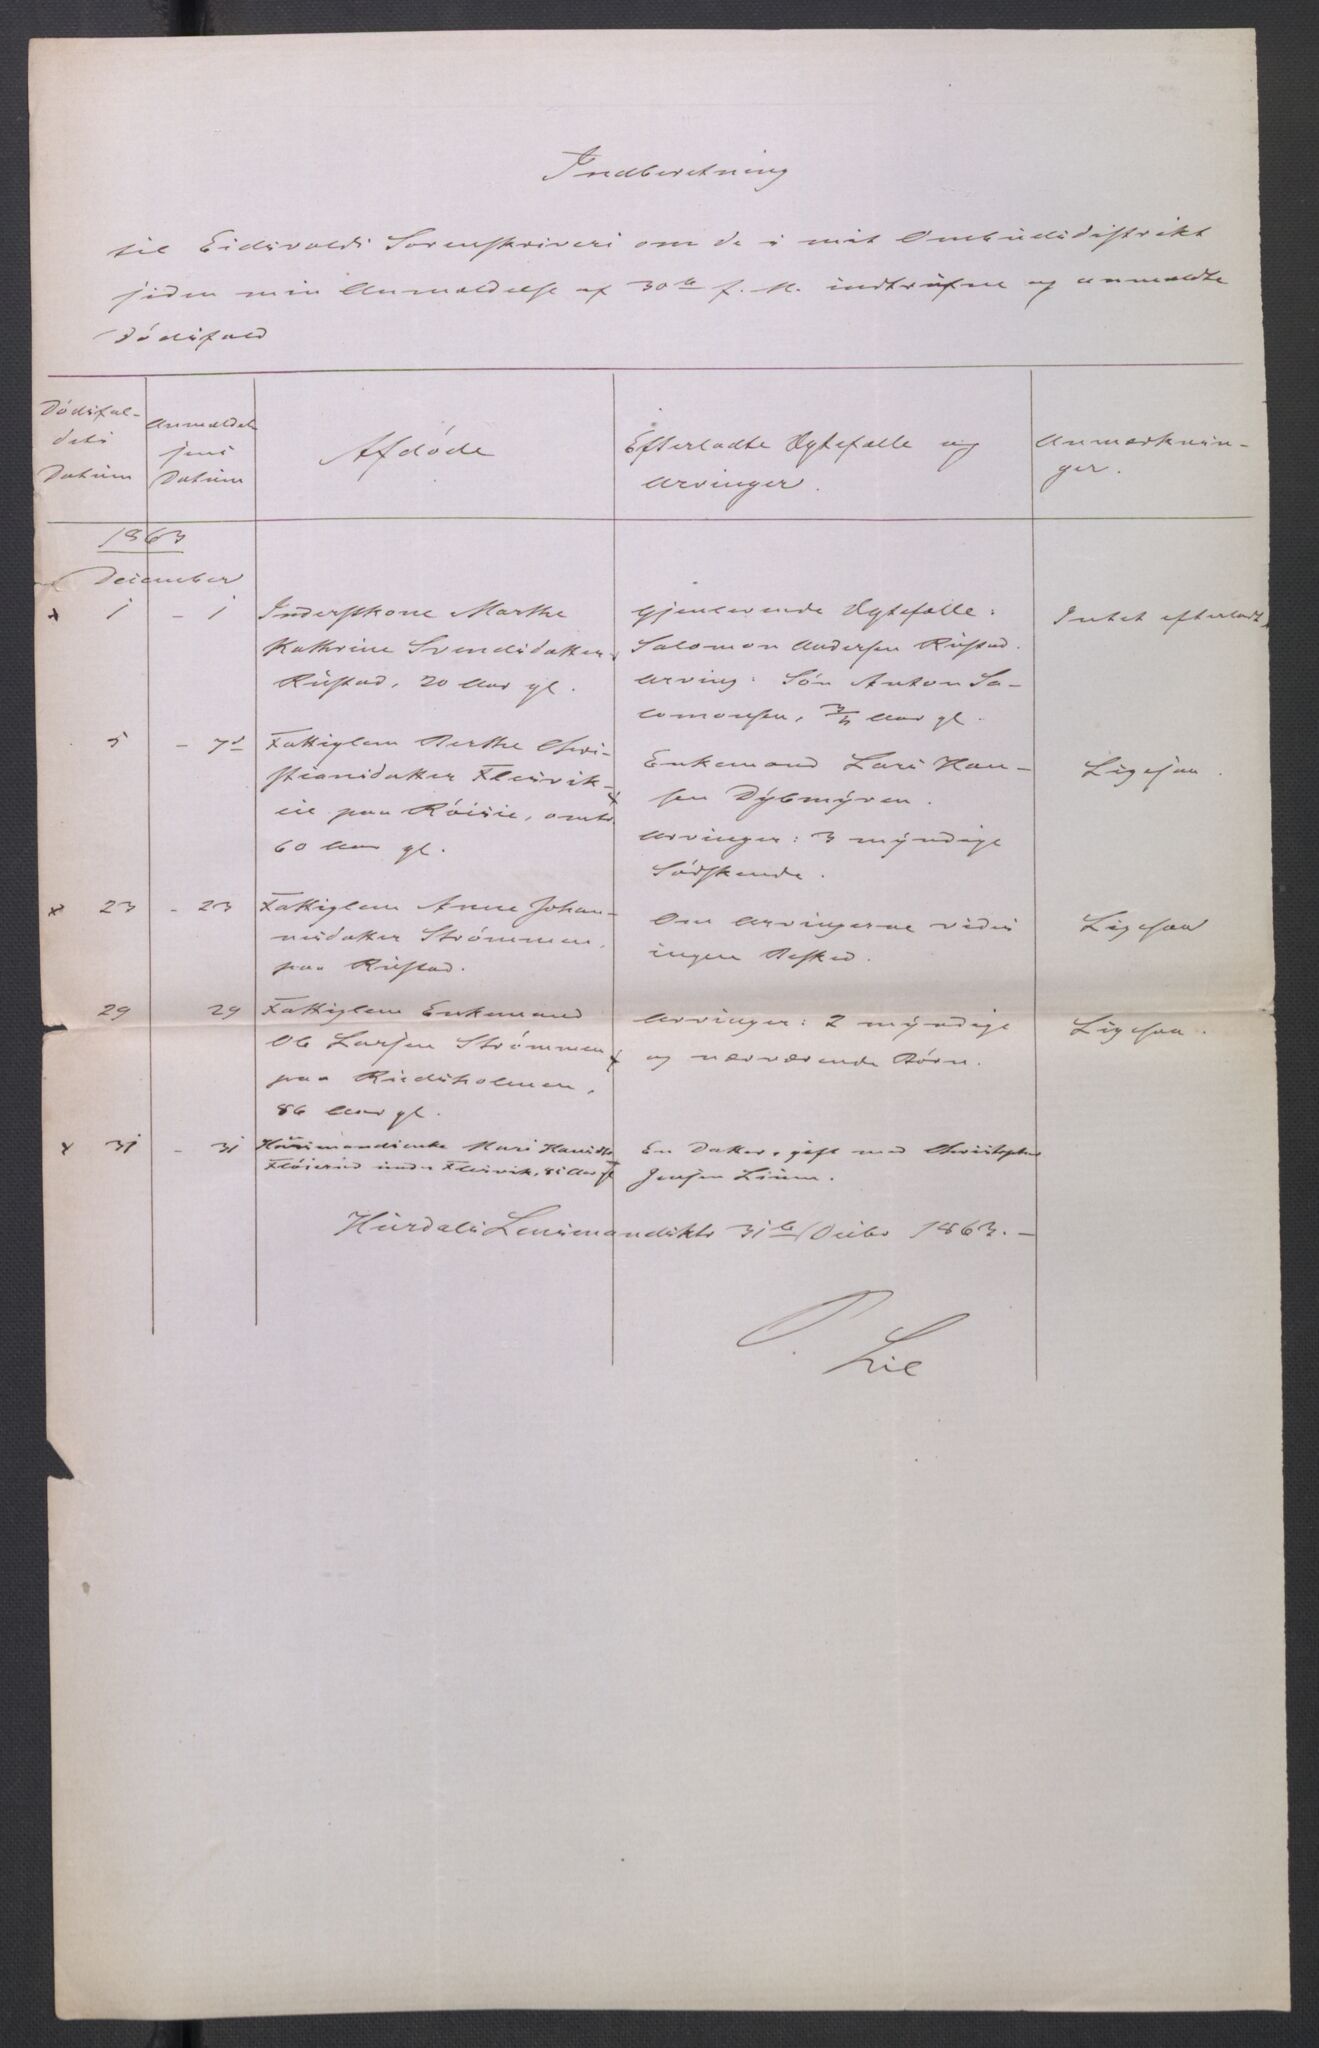 Indberetning
til Eidsvolds Sorenskriveri om de i mit Ombudsdistrikt
siden min Anmeldelse af 30te f. M. indtrufne og anmeldte
Dödsfald
Dödsfal-
dets
Datum
Anmeldel
sens
Datum
Afdöde
Efterladte Ægtefælle og
Arvinger.
Anmærknin-
ger.
1863
December
x 1 - 1 Inderstkone Marthe
Kathrine Svendsdatter
Rustad, 20 Aar gl.
Gjenlevende Ægtefælle:
Salomon Andersen Rustad.
Arving: Sön Anton Sa-
lomonsen, 3/4 Aar gl.
Intet efterladt
5 - 7d Fattiglem Berthe Chri-
stiansdatter Flesvik-
eie paa Röisie, omtr
60 Aar gl.
Enkemand Lars Han-
sen Dybmyren.
Arvinger: 3 myndige
Södskende.
Ligesaa.
x 23 - 23 Fattiglem Anne Johan-
nesdatter Strömmen,
paa Rustad.
Om Arvingerne vides
ingen Besked.
Ligesaa
29 29 Fattiglem Enkemand
Ole Larsen Strömmen x
paa Rudsholmen,
86 Aar gl.
Arvinger: 2 myndige
og nærværende Börn.
Ligesaa.
x 31 - 31 Huusmandsenke Mari Hansdtr
Flöierud under Flesvik, 81 Aar gl
En Datter, gift med Christopher
Jensen Lium.
Hurdals Lensmandsktr 31te Decbr 1863.-
O. Lie